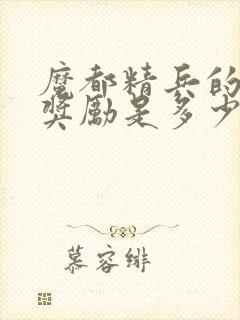 魔都精兵的
奖励是多少
慕容绯